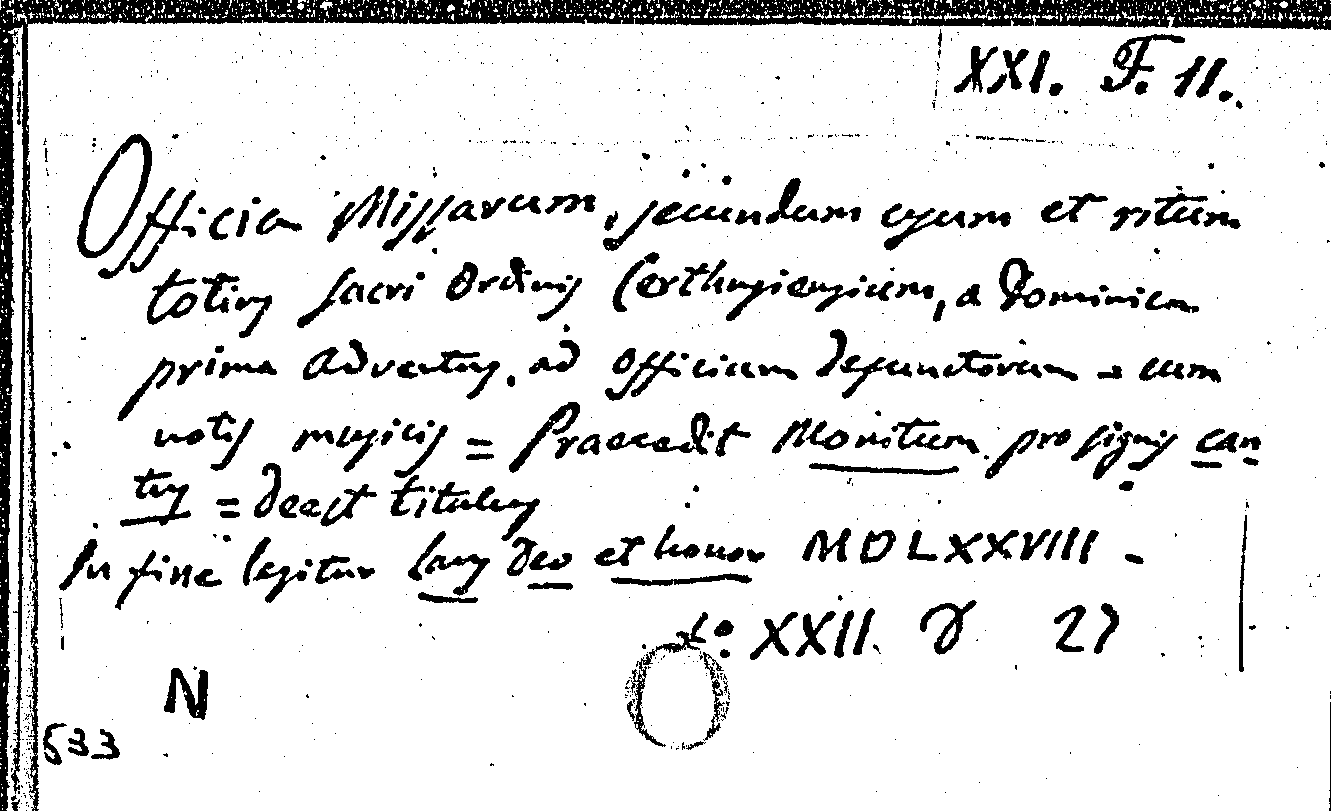 XXI. F. 11.
Officia Missarum, secundum usum et ritum
totius sacri Ordinis Carthusiensium, a Dominica
prima Adventus, ad officium defunctorum = cum
notis musicis = Praecedit Monitum pro signis can
tus = deest titulus
In fine legitur Laus Deo et honor MDLXXVIII -
XXII. 27
N
533